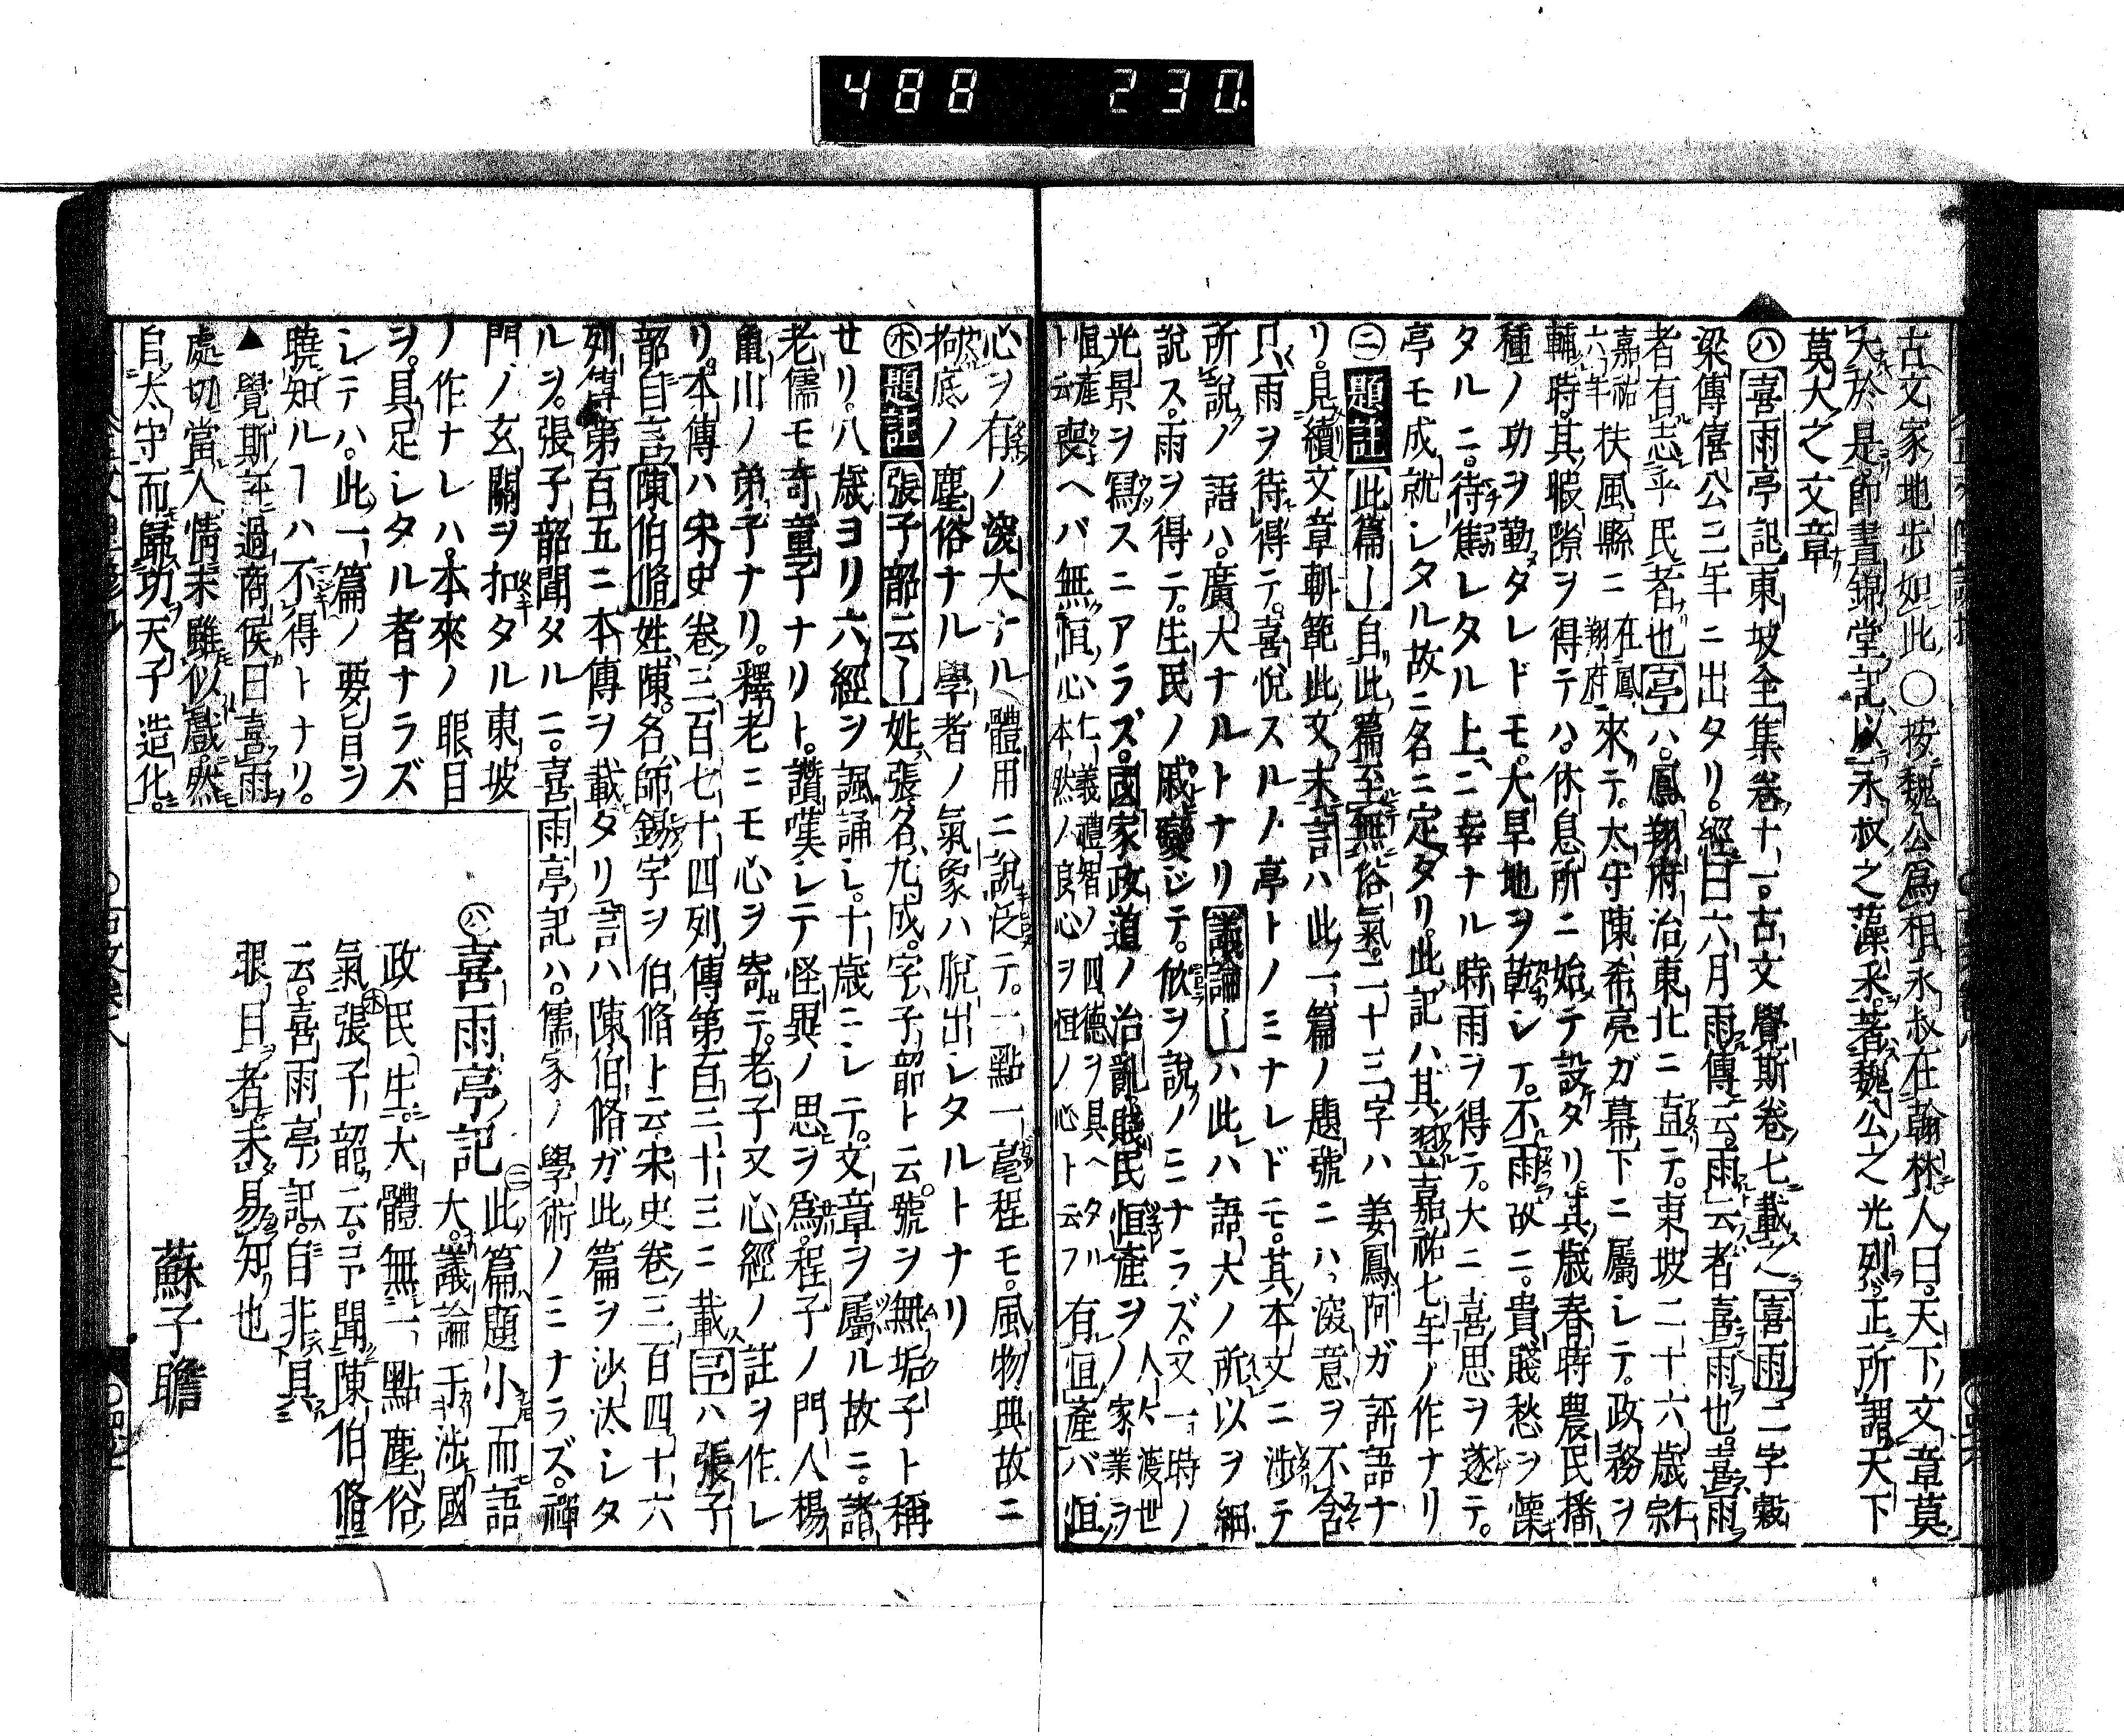 488 230
古文家地歩如此○按魏公爲相永叔在翰林人曰天下文章莫
大於是即晝錦堂記以永叔之藻采著魏公之光烈正所謂天下
莫大之文章
㊇喜雨亭記東坡全集卷十一。古文覺斯卷七載之喜雨二字穀
梁傳僖公三年ニ出タリ。經曰六月雨傳云雨云者喜雨也喜雨
者有志乎民者也亭ハ。鳳翔府治東北ニ在テ。東坡二十六歳宗
嘉祐六年扶風縣ニ在鳳翔府來テ。太守陳希亮ガ幕下ニ屬シテ。政務ヲ
輔時。其暇隙ヲ得テハ。休息所ニ始テ設タリ其歳春時農民播
種ノ功ヲ勤タレドモ。大旱地ヲ乾シテ。不雨故ニ。貴賤愁ヲ懷
タルニ。待焦レタル上ニ幸ナル時雨ヲ得テ。大ニ喜思ヲ遂テ。
亭モ成就シタル故ニ名ニ定タリ。此記ハ其翌嘉祐七年ノ作ナリ
㊁題註此篇〡自此篇至無俗氣。二十三字ハ姜鳳阿ガ評語ナ
リ。見續文章軌範此文末言ハ此一篇ノ題號ニハ深意ヲ不含
只雨ヲ待得テ。喜悅スルノ亭トノミナレドモ。其本文ニ渉テ
所說ノ語ハ。廣大ナルトナリ議論〡ハ此ハ語大ノ所以ヲ細
說ス。雨ヲ得テ。生民ノ戚變ジテ。歓ヲ說ノミナラズ。又一時ノ
光景ヲ寫スニアラズ。國家政道ノ治亂賤民恒產ヲノ家業ヲ人々渡世
恒產ト云喪ヘバ無恒心仁義禮智ノ四德ヲ具ヘタル本然ノ良心ヲ恒ノ心ト云フ有恒產バ恒
心ヲ有ノ深大ナル體用ニ說泛テ。一點一毫程モ。風物典故ニ
拘底ノ塵俗ナル學者ノ氣象ハ脫出シタルトナリ
㊍題註張子韶云〡姓張名九成。字子韶ト云號ヲ無垢子ト稱
セリ。八歳ヨリ六經ヲ諷誦シ。十歳ニシテ。文章ヲ屬ル故ニ。諸
老儒モ奇童子ナリト。讚嘆シテ怪異ノ思ヲ爲程子ノ門人楊
龜山ノ弟子ナリ。釋老ニモ心ヲ寄テ。老子又心經ノ註ヲ作レ
リ。本傳ハ宋史卷三百七十四列傳第百三十三ニ載予ハ張子
韶自言陳伯脩姓陳名師錫字ヲ伯脩ト云宋史卷三百四十六
列傳第百五ニ本傳ヲ載タリ言ハ陳伯脩ガ此篇ヲ沙汰シタ
ルヲ。張子韶聞タルニ。喜雨亭記ハ。儒家ノ學術ノミナラズ。禪
門ノ玄關ヲ扣タル東坡
ノ作ナレハ。本來ノ眼目
ヲ。具足シタル者ナラズ
シテハ。此一篇ノ要旨ヲ
曉知ルヿハ不得トナリ。
▲覺斯評過商侯曰喜雨
處切當人情末雖似戲然
自太守而歸功天子造化。
㊇喜雨亭記㊁此篇題小而語
大。議論于渉國
政民生。大體無一點塵俗
氣㊍張子韶云。予聞陳伯脩
云。喜雨亭記。自非具
眼目者未易知也
蘇子瞻